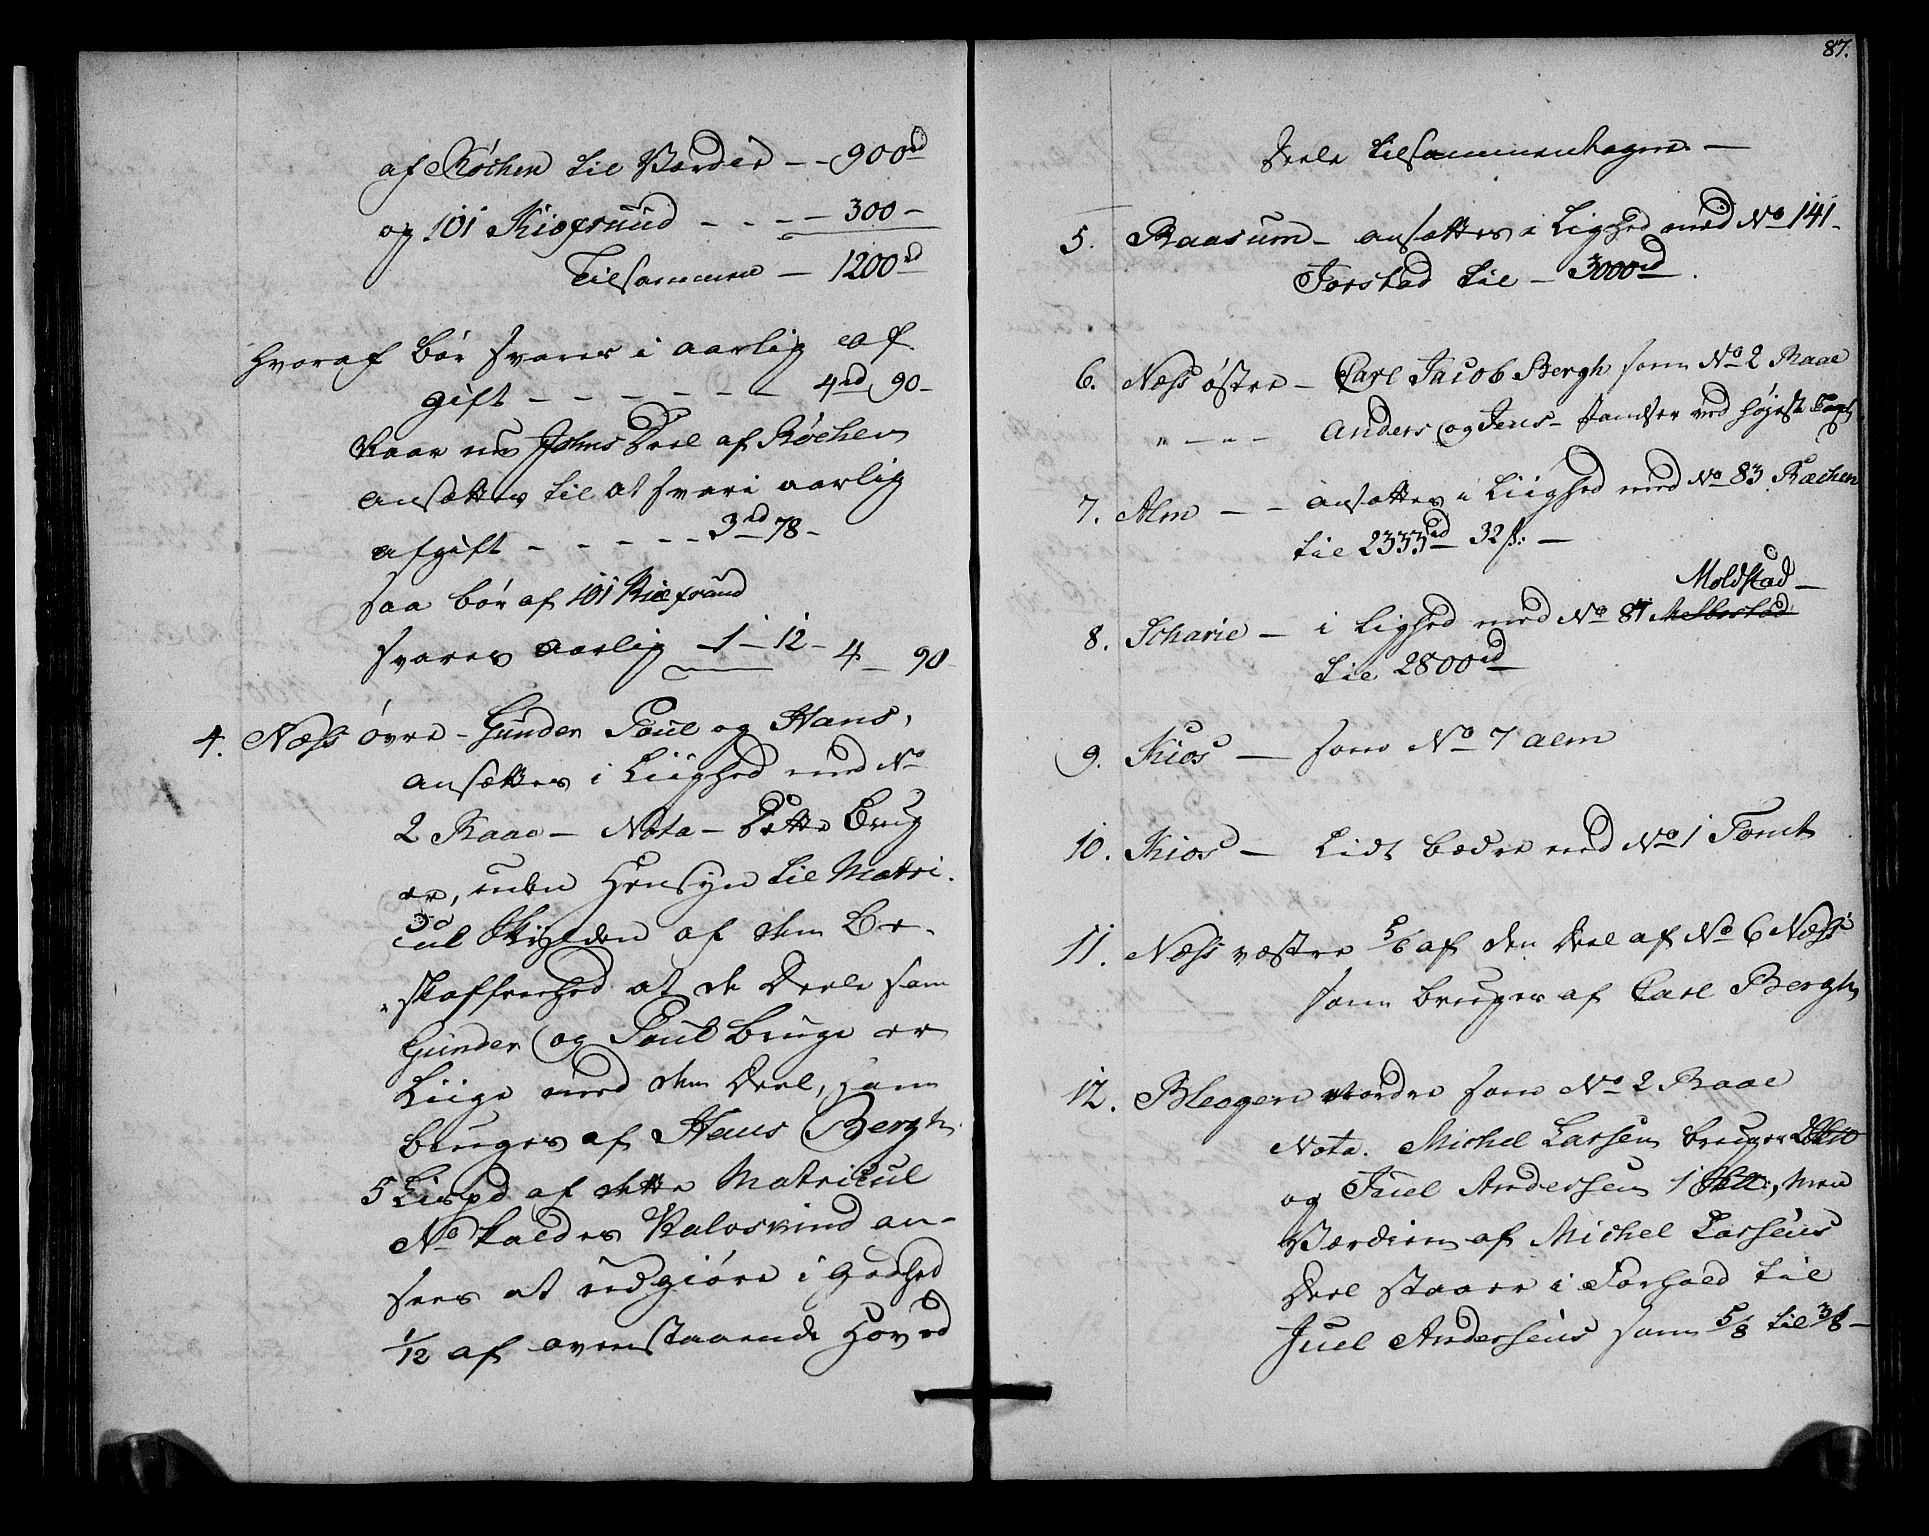 af Røchen til Værdie - - 900rd
og 101 Kiøfsrud - - - - 300 -
Tilsammen - 1200rd
hvoraf bør svares i aarlig af
gift - - - - - - - 4rd 90 -
Naar nu Johns Deel af Røchen
ansættes til at svare aarlig
afgift - - - - - 3rd 78 -
saa bør af 101
svares aarlig 1 - 12 - 4 - 90
4. Næss øvre - Gunder Poul og Hans,
ansættes i Liighed med No
2 Raae - Nota - Dette Brug
er, uden Hensyn til Matri-
cul Skylden af den Be-
skaffenhed at de Deele som
Gunder og Poul bruge er
Liige med den Deel, som
bruges af Hans Bergh.
5 Lispd af dette Matricul
No kaldes Kalosvind an-
sees at udgiøre i Godhed
1/12 af ovenstaaende Hoved
87.
Deele tilsammentagne. -
5. Raasum - ansættes i Lighed med No 141 -
Forstad til - 3000rd.
6. Næss østre - Carl Jacob Bergh som No 2 Raae
" - " - Anders og Jens - standser ved højeste Taxt
7. Alm - - ansættes i Liighed med No 83 Ræchen
til 2333rd 32 s: -
Moldstad -
8. Scharie - i Lighed med No 87
til 2800rd
9. Kios - som No 7 Alm
10. Kios - Lidt bedre end No 1 Tomt
11. Næss vestre 5/6 af den Deel af No 6 Næss
som bruges af Carl Bergh
12. Blegen nordre som No 2 Raae
Nota. Michel Larsen bruger
og Juel Andersen 1 , men
Værdien af Michel Larsens
Deel staaer i Forhold til
Juel Andersens som 5/8 til 3/8 -